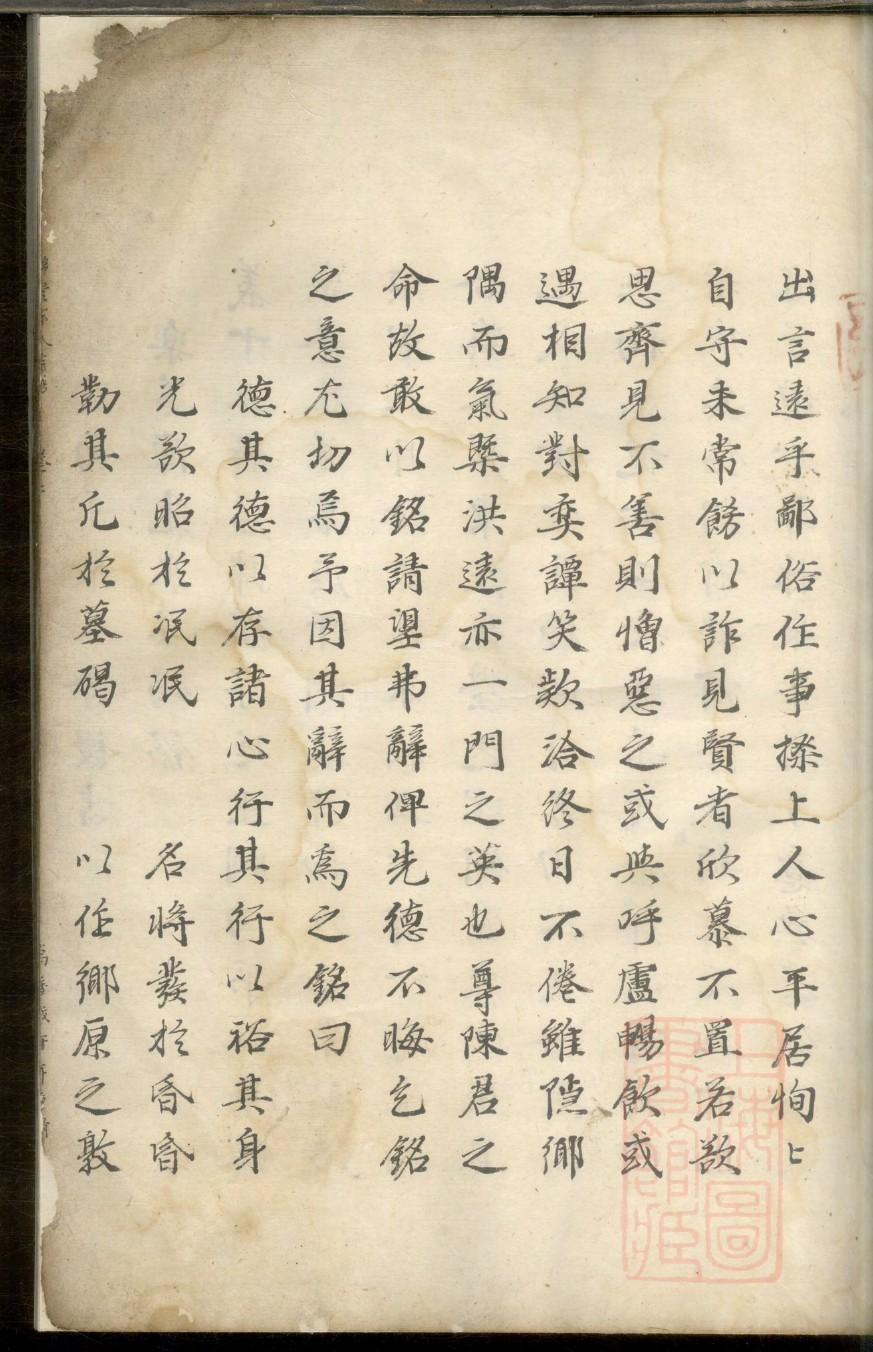 出言遠乎鄙俗作事揉上人心平居恂〻
自守未常餝以詐見賢者欣慕不置若欲
思齊見不善則憎惡之或與呼盧暢飲或
遇相知對奕譚笑欵洽終日不倦雖隠鄉
隅而氣槩洪遠亦一門之英也尊陳君之
命故敢以銘請望弗辭俾先德不晦乞銘
之意尤切焉予因其辭而爲之銘曰
德其德以存諸心行其行以裕其身
光欲昭於冺冺 名將發於昏昏
勒其凡於墓碣 以作鄉原之敦
上海圖書館藏